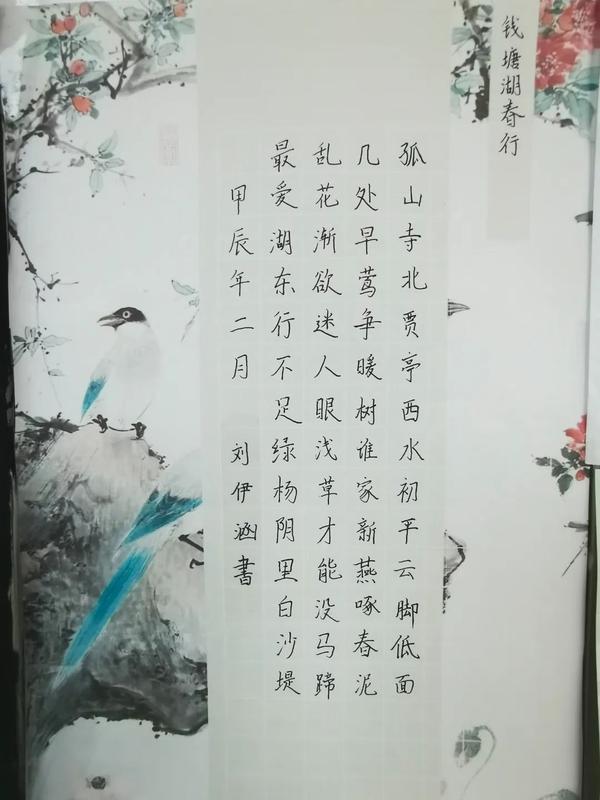 钱塘湖春行
孤山寺北贾亭西水初平云脚低面
几处早莺争暖树谁家新燕啄春泥
乱花渐欲迷人眼浅草才能没马蹄
最爱湖东行不足绿杨阴里白沙堤
甲辰年二月 刘伊涵書